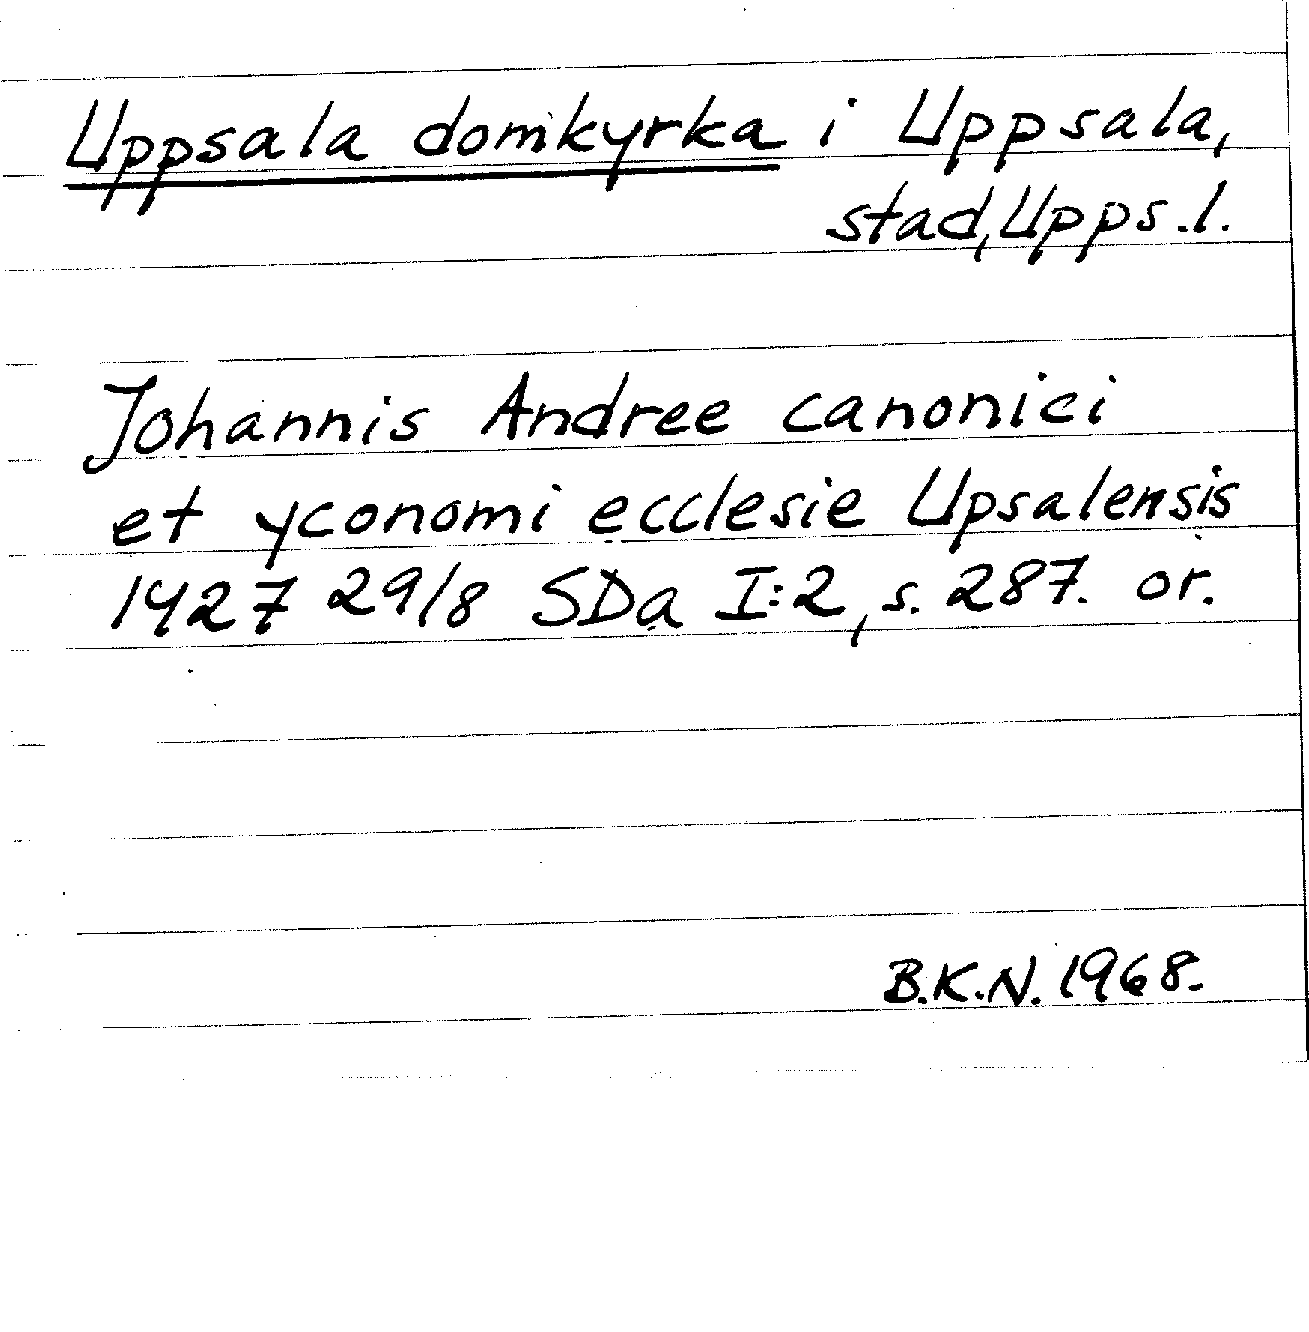 Uppsala domkyrka i Uppsala,
stad, Upps.l.
Johannis Andree canonici
et yconomi ecclesie Upsalensis
1427 29/8 SDa I:2, s. 287. or.
B.K.N. 1968.